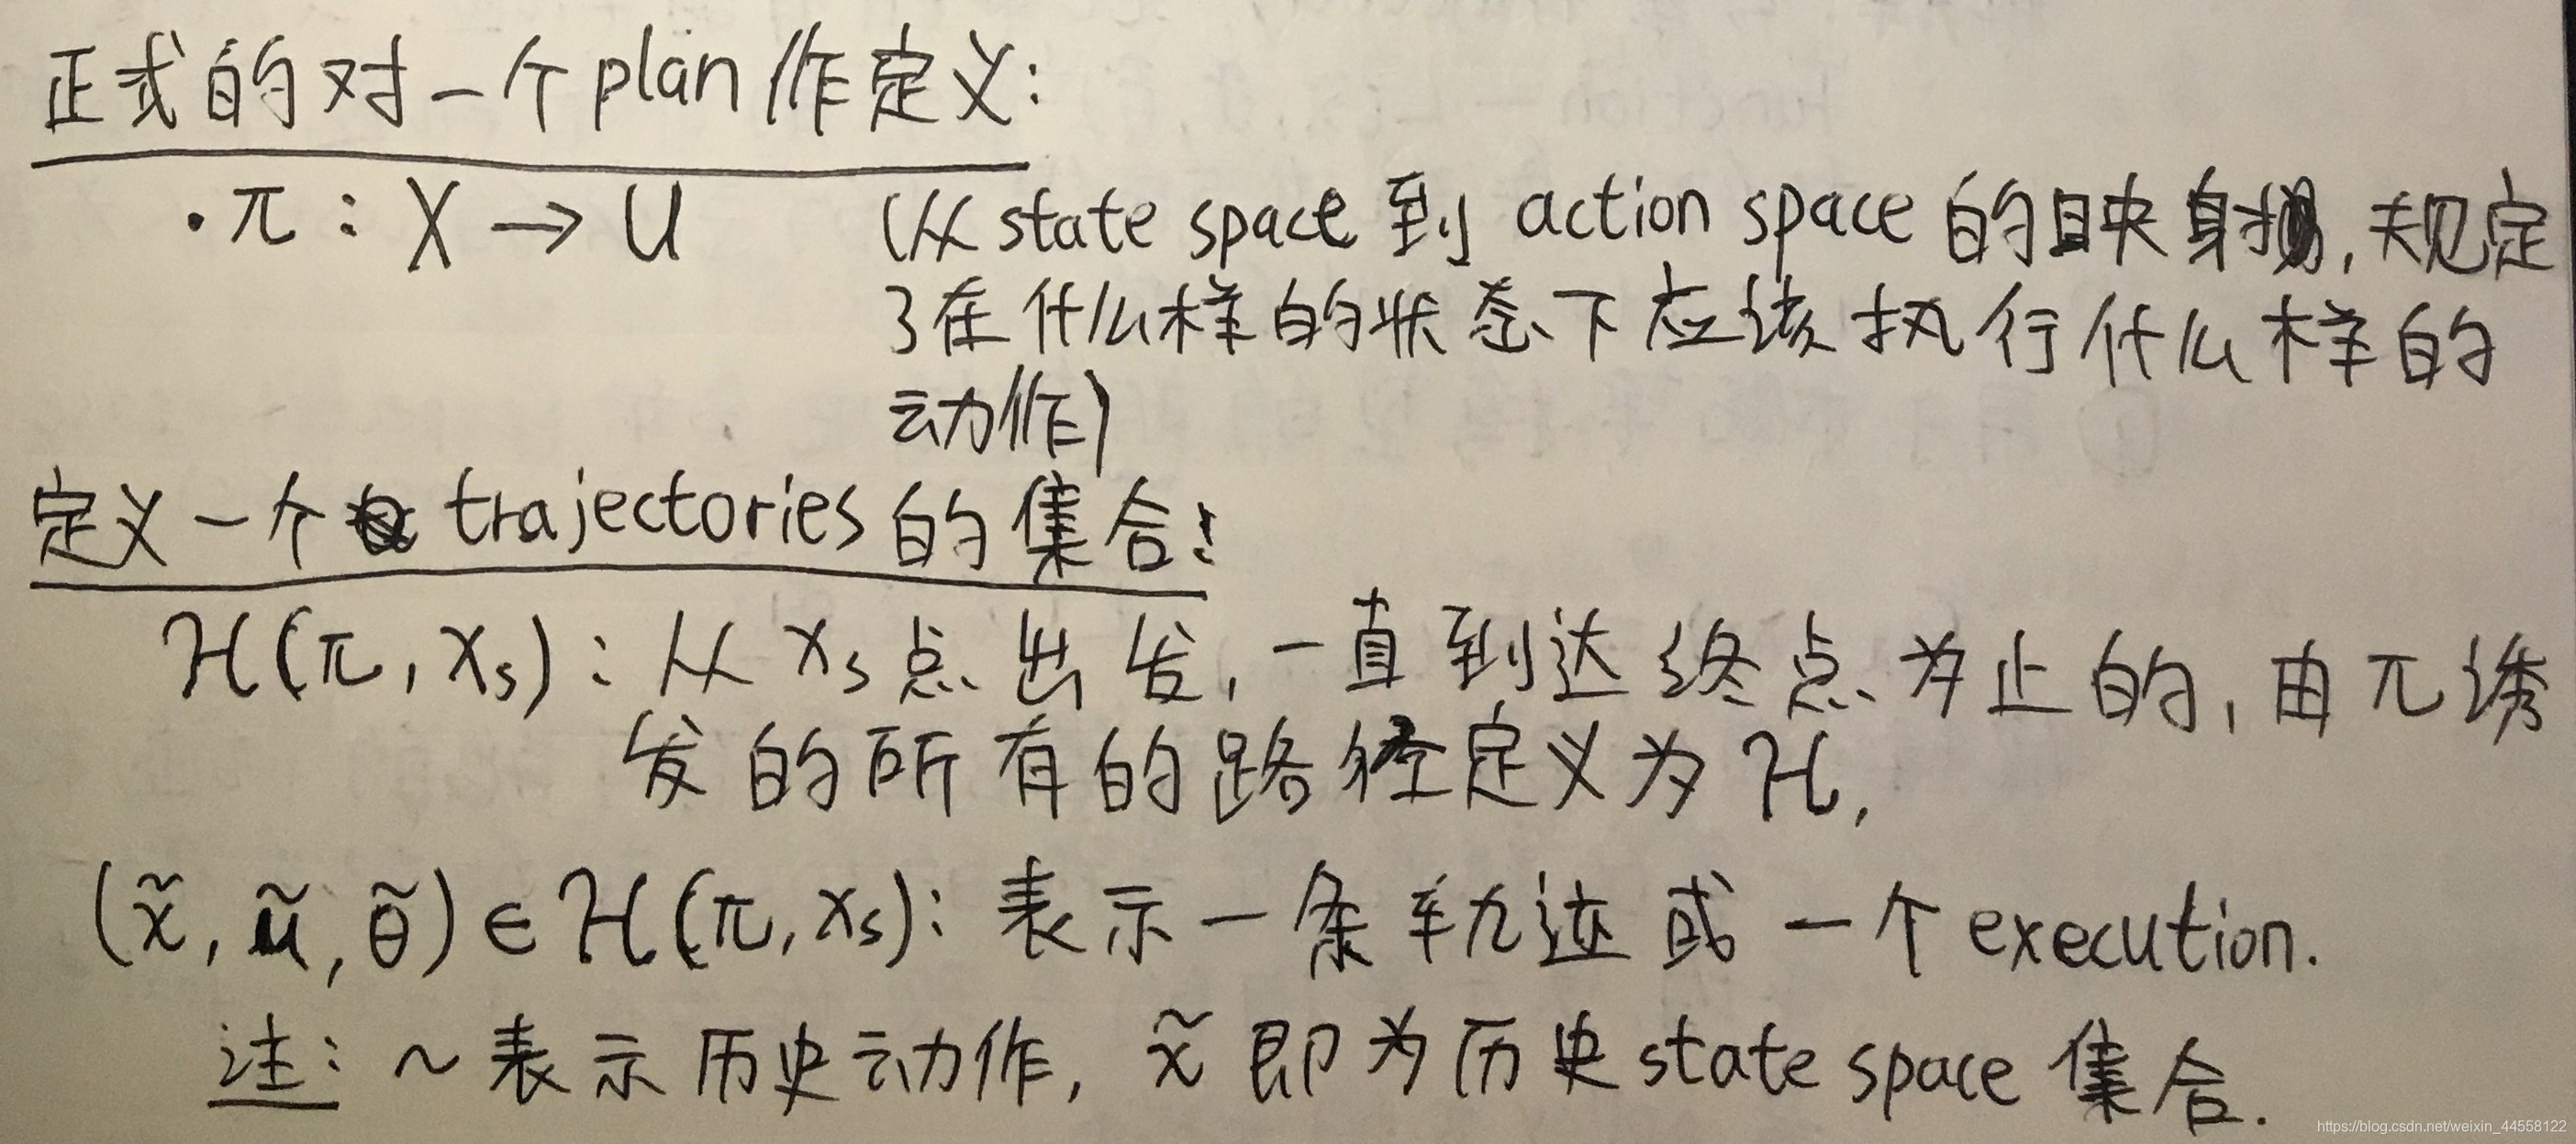 正式的对一个plan作定义:
·π : X → U (从state space到 action space的映射,规定
了在什么样的状态下应该执行什么样的
动作)
定义一个trajectories的集合:
H(π, Xs) : 从Xs点出发,一直到达终点为止的,由π诱
发的所有的路径定义为H,
(x̃, ũ, θ̃) ∈ H(π, xs): 表示一条轨迹或一个execution.
注: ~表示历史动作, x̃即为历史state space集合.
https://blog.csdn.net/weixin_44558122